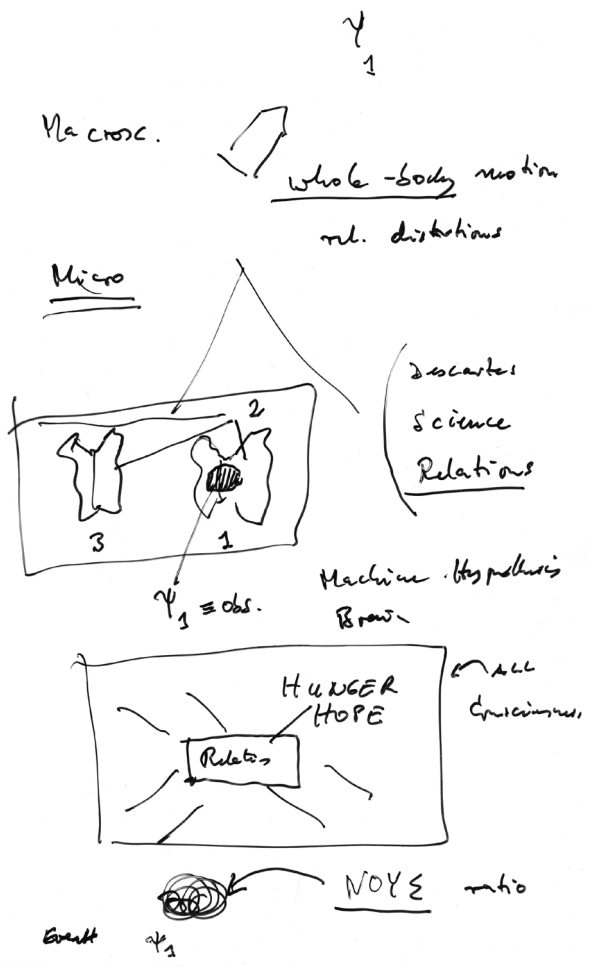 Ψ
1
Macrosc.
whole-body motion
rel. distortions
Micro
Descartes
Science
Relations
2
3
1
Ψ1 ≡ obs.
Machine Hypothesis
Brain
ALL
Consciousness.
HUNGER
HOPE
NOYΣ ratio
Ψ1